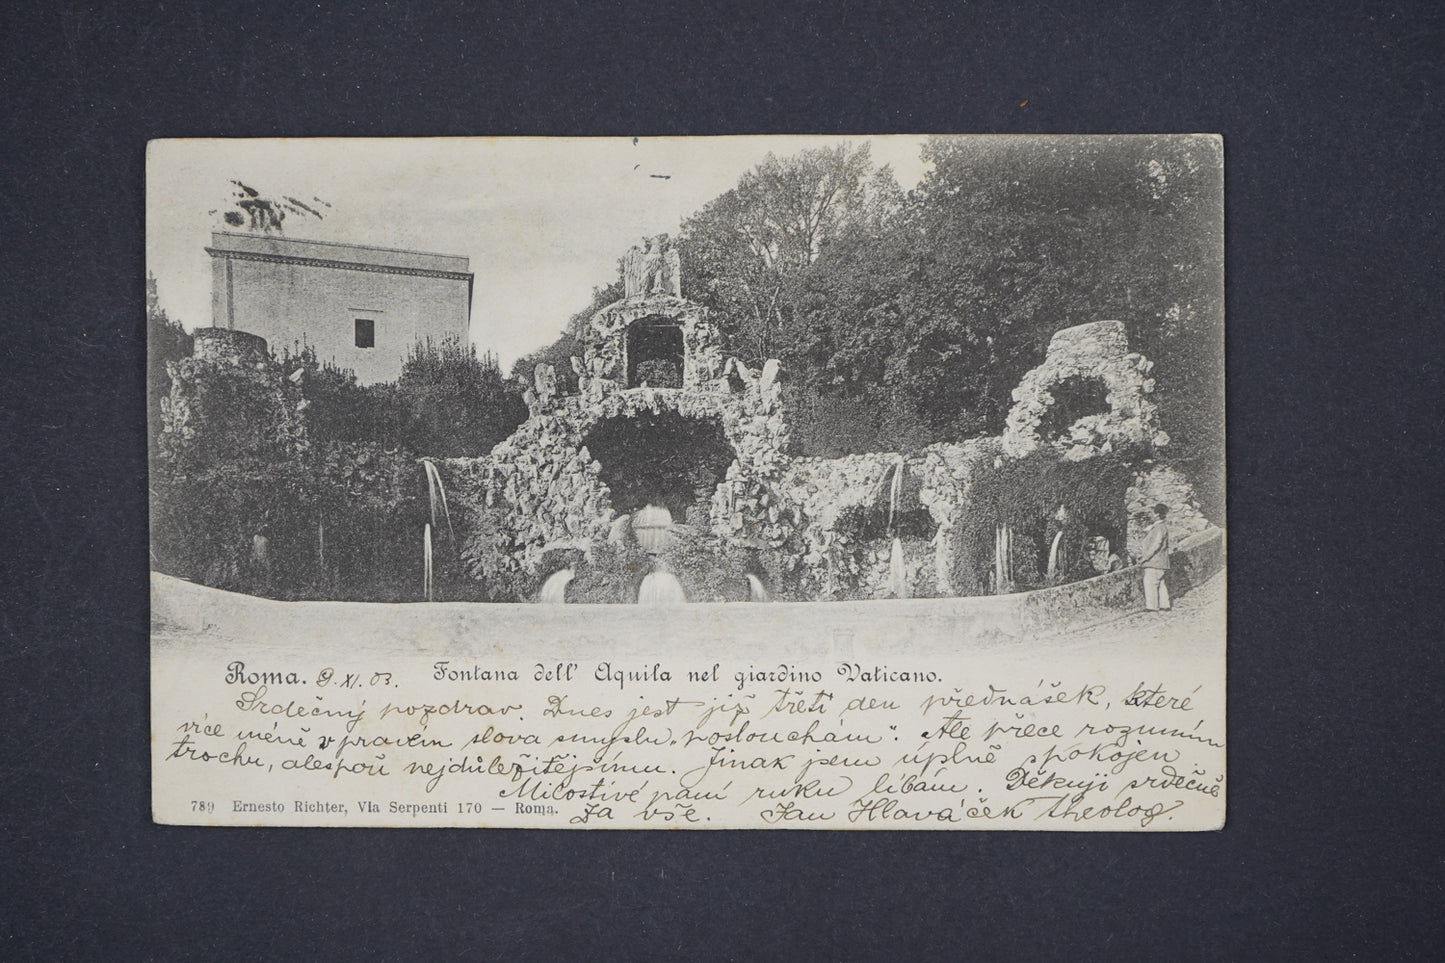 Roma. 9. XI. 03. Fontana dell' Aquila nel giardino Vaticano.
Srdečný pozdrav. Dnes jest již třetí den přednášek, které
více méně v pravém slova smyslu „poslouchám“. Ale přece rozumím
trochu, alespoň nejdůležitějšímu. Jinak jsem úplně spokojen.
Milostivé paní ruku líbám. Děkuji srdečně
789 Ernesto Richter, Via Serpenti 170 — Roma.
za vše. Jan Hlaváček theolog.